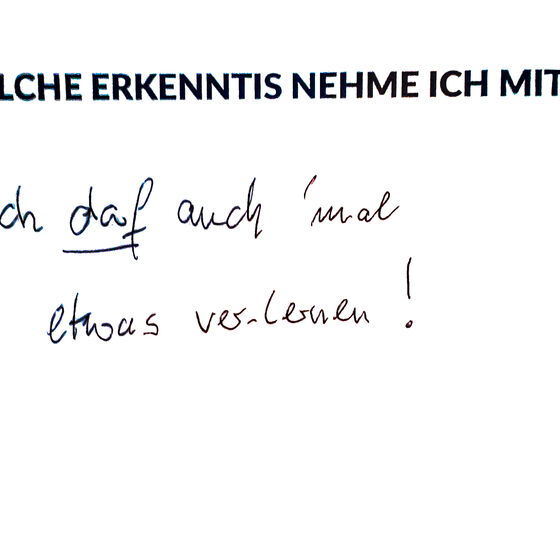 LCHE ERKENNTIS NEHME ICH MIT
ch daf auch 'mal
etwas ver-lernen!